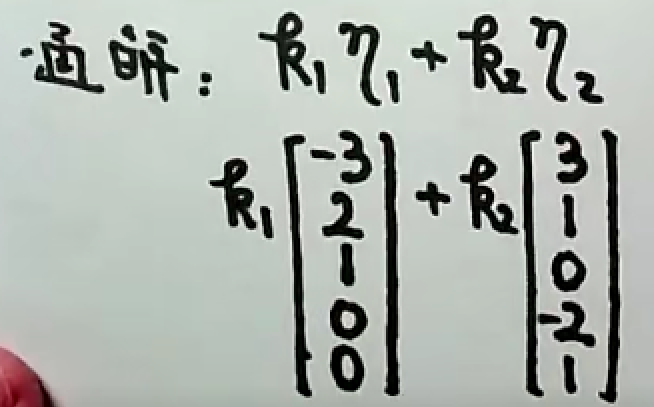 通解: k₁η₁+k₂η₂
k₁[-3 2 1 0 0]+k₂[3 1 0 -2 1]